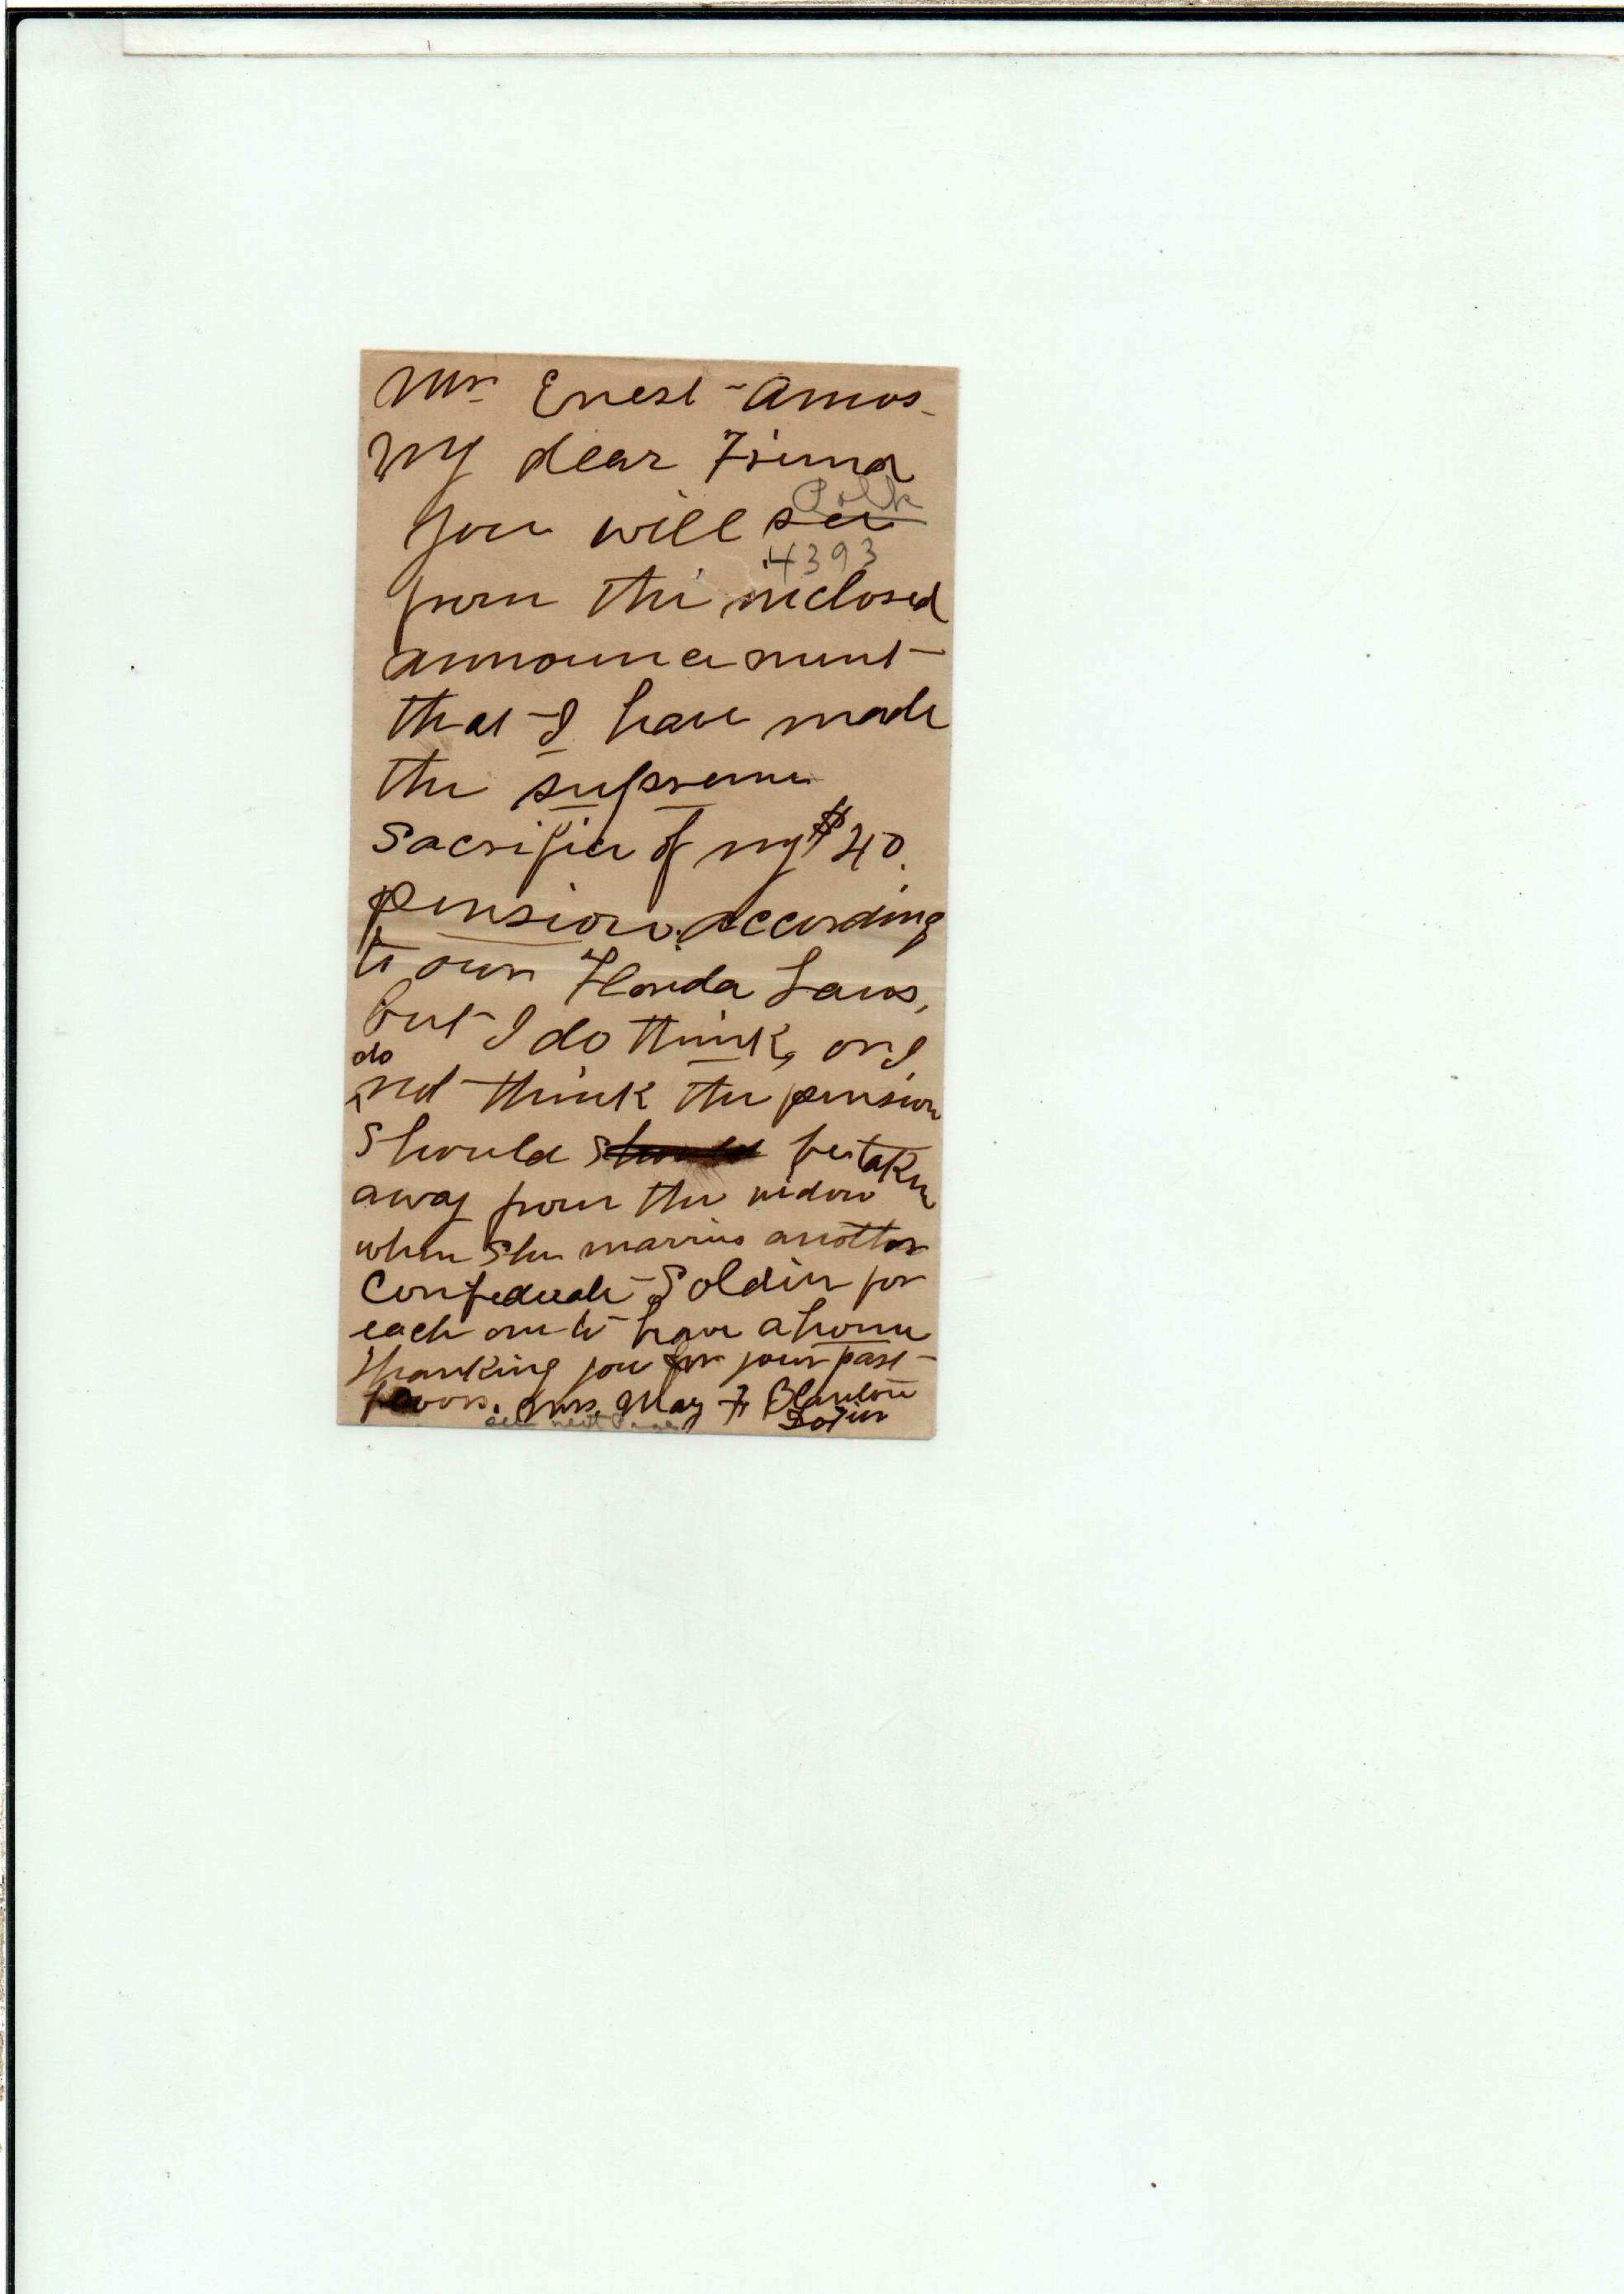 Mr Ernest Amos
My dear Friend
Polk
you will see
4393
from the inclosed
announcement
that I have made
the supreme
sacrifice of my $40.
pension. according
to our Florida Laws,
but I do think, or I
do
not think the pension
should should be taken
away from the widow
when she marries another
Confederate Soldier for
each one to have a home
Thanking you for your past
favors. Mrs. May F Blanton
see next Page